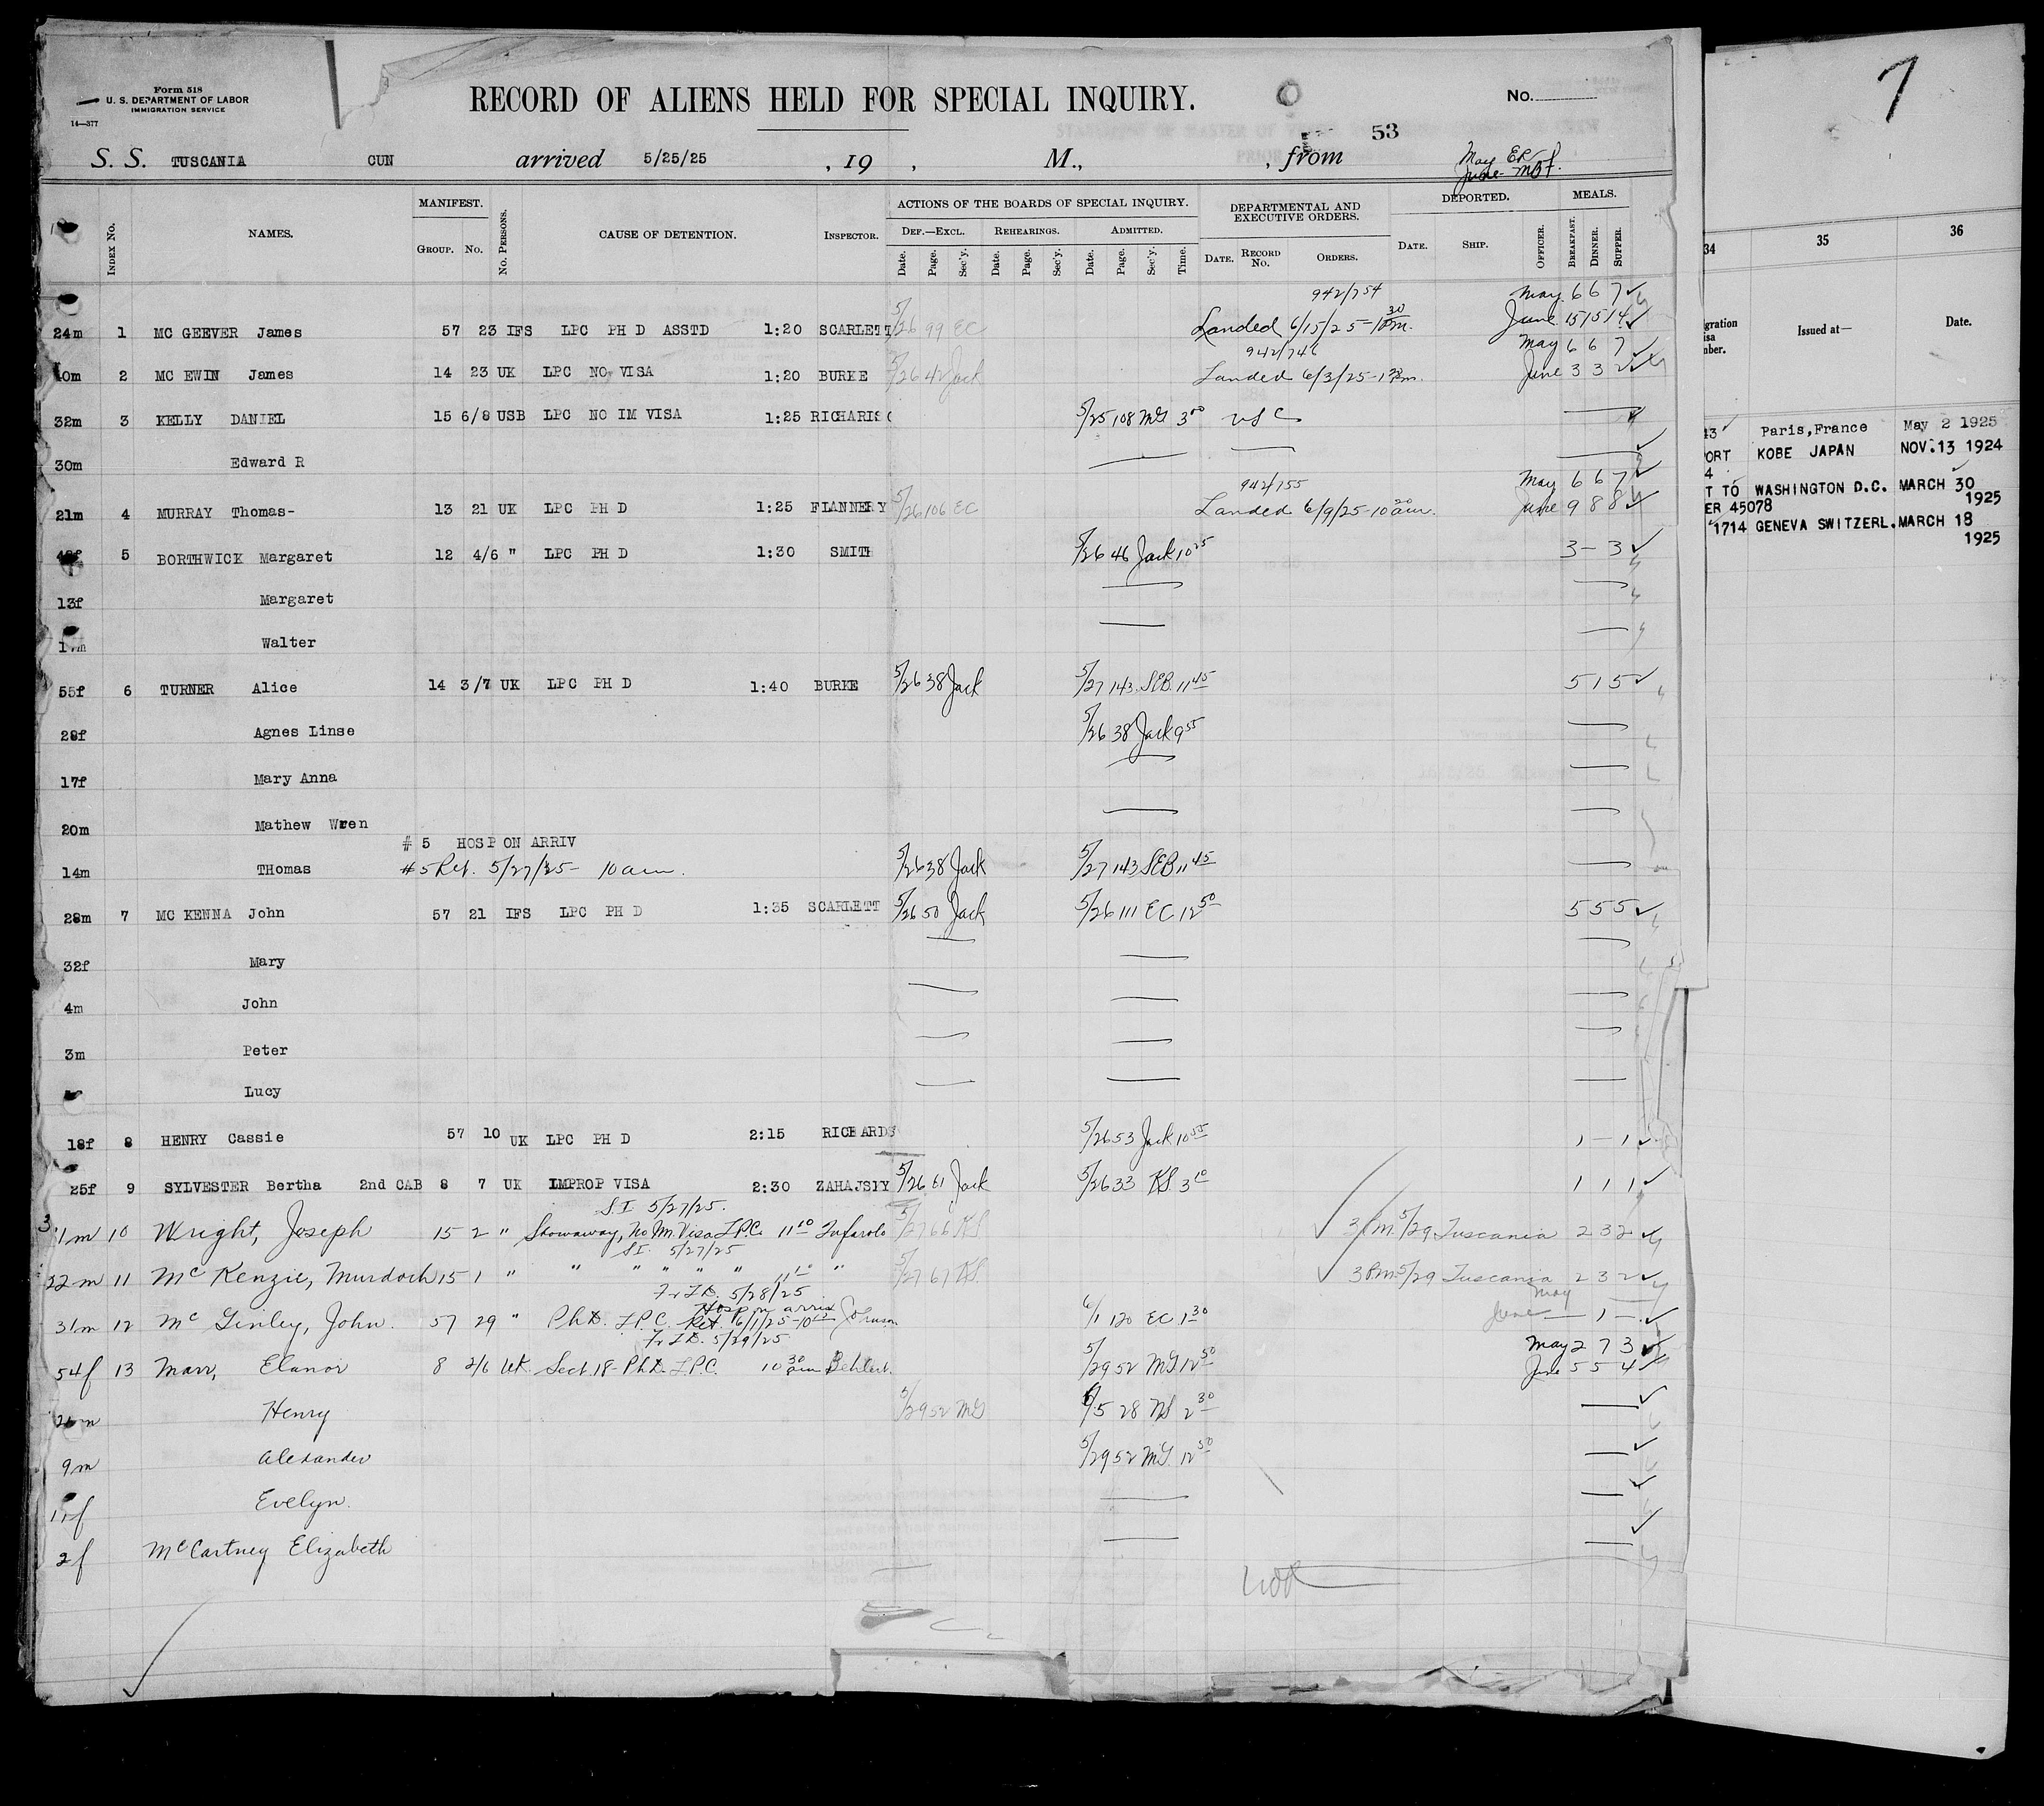 Form 518
U. S. DEPARTMENT OF LABOR
IMMIGRATION SERVICE
14—377
RECORD OF ALIENS HELD FOR SPECIAL INQUIRY.
No.
53
S. S. TUSCANIA CUN arrived 5/25/25 , 19 , M., , from
May ER
June
MANIFEST. ACTIONS OF THE BOARDS OF SPECIAL INQUIRY. DEPARTMENTAL AND EXECUTIVE ORDERS. DEPORTED. MEALS.
Index No. NAMES. Group. No. No. Persons. CAUSE OF DETENTION. Inspector. Def.—Excl. Rehearings. Admitted.
Date. Page. Sec'y. Date. Page. Sec'y. Date. Page. Sec'y. Time. Date. Record No. Orders. Date. Ship. Officer. Breakfast. Dinner. Supper.
942/754 May 6 6 7
24m 1 MC GEEVER James 57 23 IFS LPC PH D ASSTD 1:20 SCARLETT 5/26 99 EC Landed 6/15/25 June 15 15 14
942/746 May 6 6 7
2 MC EWIN James 14 23 UK LPC NO VISA 1:20 BURKE 5/26 42 Jack Landed 6/3/25 June 3 3 2
32m 3 KELLY DANIEL 15 6/8 USB LPC NO IM VISA 1:25 RICHARIS 5/25 108 MG 3 00 USC
30m Edward R
942/155 May 6 6 7
21m 4 MURRAY Thomas- 13 21 UK LPC PH D 1:25 FLANNERY 5/26 106 EC Landed 6/9/25-10 20 am. June 9 8 8
5 BORTHWICK Margaret 12 4/6 " LPC PH D 1:30 SMITH 5/26 46 Jack 10 25 3 – 3
13f Margaret
Walter
55f 6 TURNER Alice 14 3/7 UK LPC PH D 1:40 BURKE 5/26 38 Jack 5/27 143 SEB 11 45 5 1 5
28f Agnes Linse 5/26 38 Jack 9 55
17f Mary Anna
20m Mathew Wren
# 5 HOSP ON ARRIV
14m THomas #5 Ret. 5/27/25- 10 am. 5/26 38 Jack 5/27 143 SEB 11 45
28m 7 MC KENNA John 57 21 IFS LPC PH D 1:35 SCARLETT 5/26 50 Jack 5/26 111 EC 12 50 5 5 5
32f Mary
4m John
3m Peter
Lucy
18f 8 HENRY Cassie 57 10 UK LPC PH D 2:15 RICHARDS 5/26 53 Jack 10 55 1 – 1
25f 9 SYLVESTER Bertha 2nd CAB 8 7 UK IMPROP VISA 2:30 ZAHAJSIY 5/26 61 Jack 5/26 33 KS 3 1 1 1
S.I. 5/27/25.
31m 10 Wright, Joseph 15 2 " Stowaway, No Im. Visa L.P.C. 11 10 Tufarolo 5/27 66 KS 3 P.M. 5/29 Tuscania 2 3 2
S.I. 5/27/25
22m 11 McKenzie, Murdoch 15 1 " " " " " " 11 " 5/27 67 KS. 3 P.M. 5/29 Tuscania 2 3 2
5/28/25 May
Hosp on arriv
31m 12 McGinley, John. 57 29 " Ph.D. L.P.C. Ret. 6/1/25-10 Johnson 6/1 120 EC 1 30 June – 1 –
5/29/25 May 2 7 3
54f 13 Marr, Elanor 8 2/6 UK. Sect. 18-Ph.D. L.P.C. 10 30 am 5/29 52 MG 12 50 June 5 5 4
Henry 5/29 52 MG 6/5 28 2 30
9m Alexander 5/29 52 MG. 12 50
Evelyn.
2f McCartney Elizabeth
7
34 35 36
Issued at— Date.
Paris,France May 2 1925
PORT KOBE JAPAN NOV.13 1924
4
T TO WASHINGTON D.C. MARCH 30
ER 45078 1925
1714 GENEVA SWITZERL. MARCH 18
1925